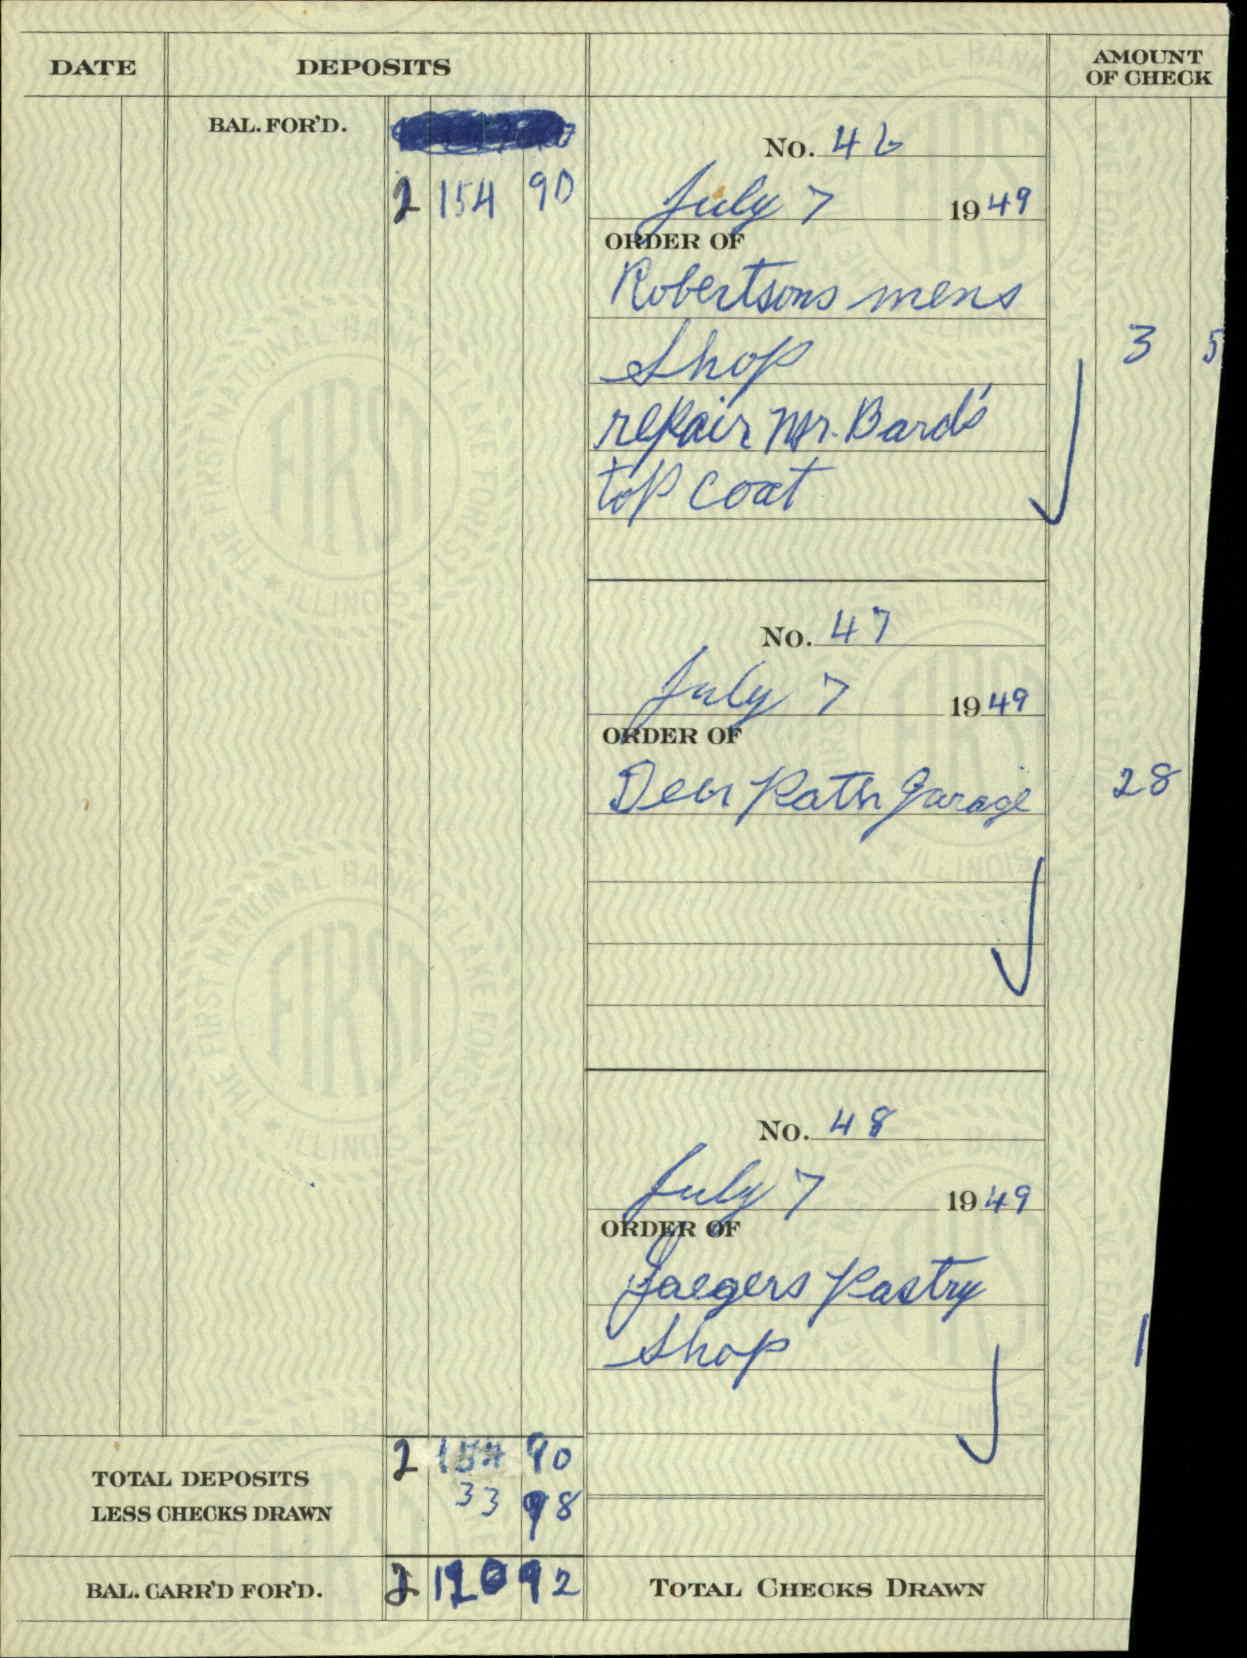 DATE DEPOSITS AMOUNT OF CHECK
BAL. FOR'D.
2 154 90
No. 46
July 7 1949
ORDER OF
Robertsons mens
Shop 3 5
repair Mr. Bard's
top coat
No. 47
July 7 1949
ORDER OF
Deer Path Garage 28
No. 48
July 7 1949
ORDER OF
Jaegers Pastry
Shop 1
TOTAL DEPOSITS 2 154 90
LESS CHECKS DRAWN 33 98
BAL. CARR'D FOR'D. 2 120 92
TOTAL CHECKS DRAWN
THE FIRST NATIONAL BANK OF LAKE FOREST
ILLINOIS
FIRST